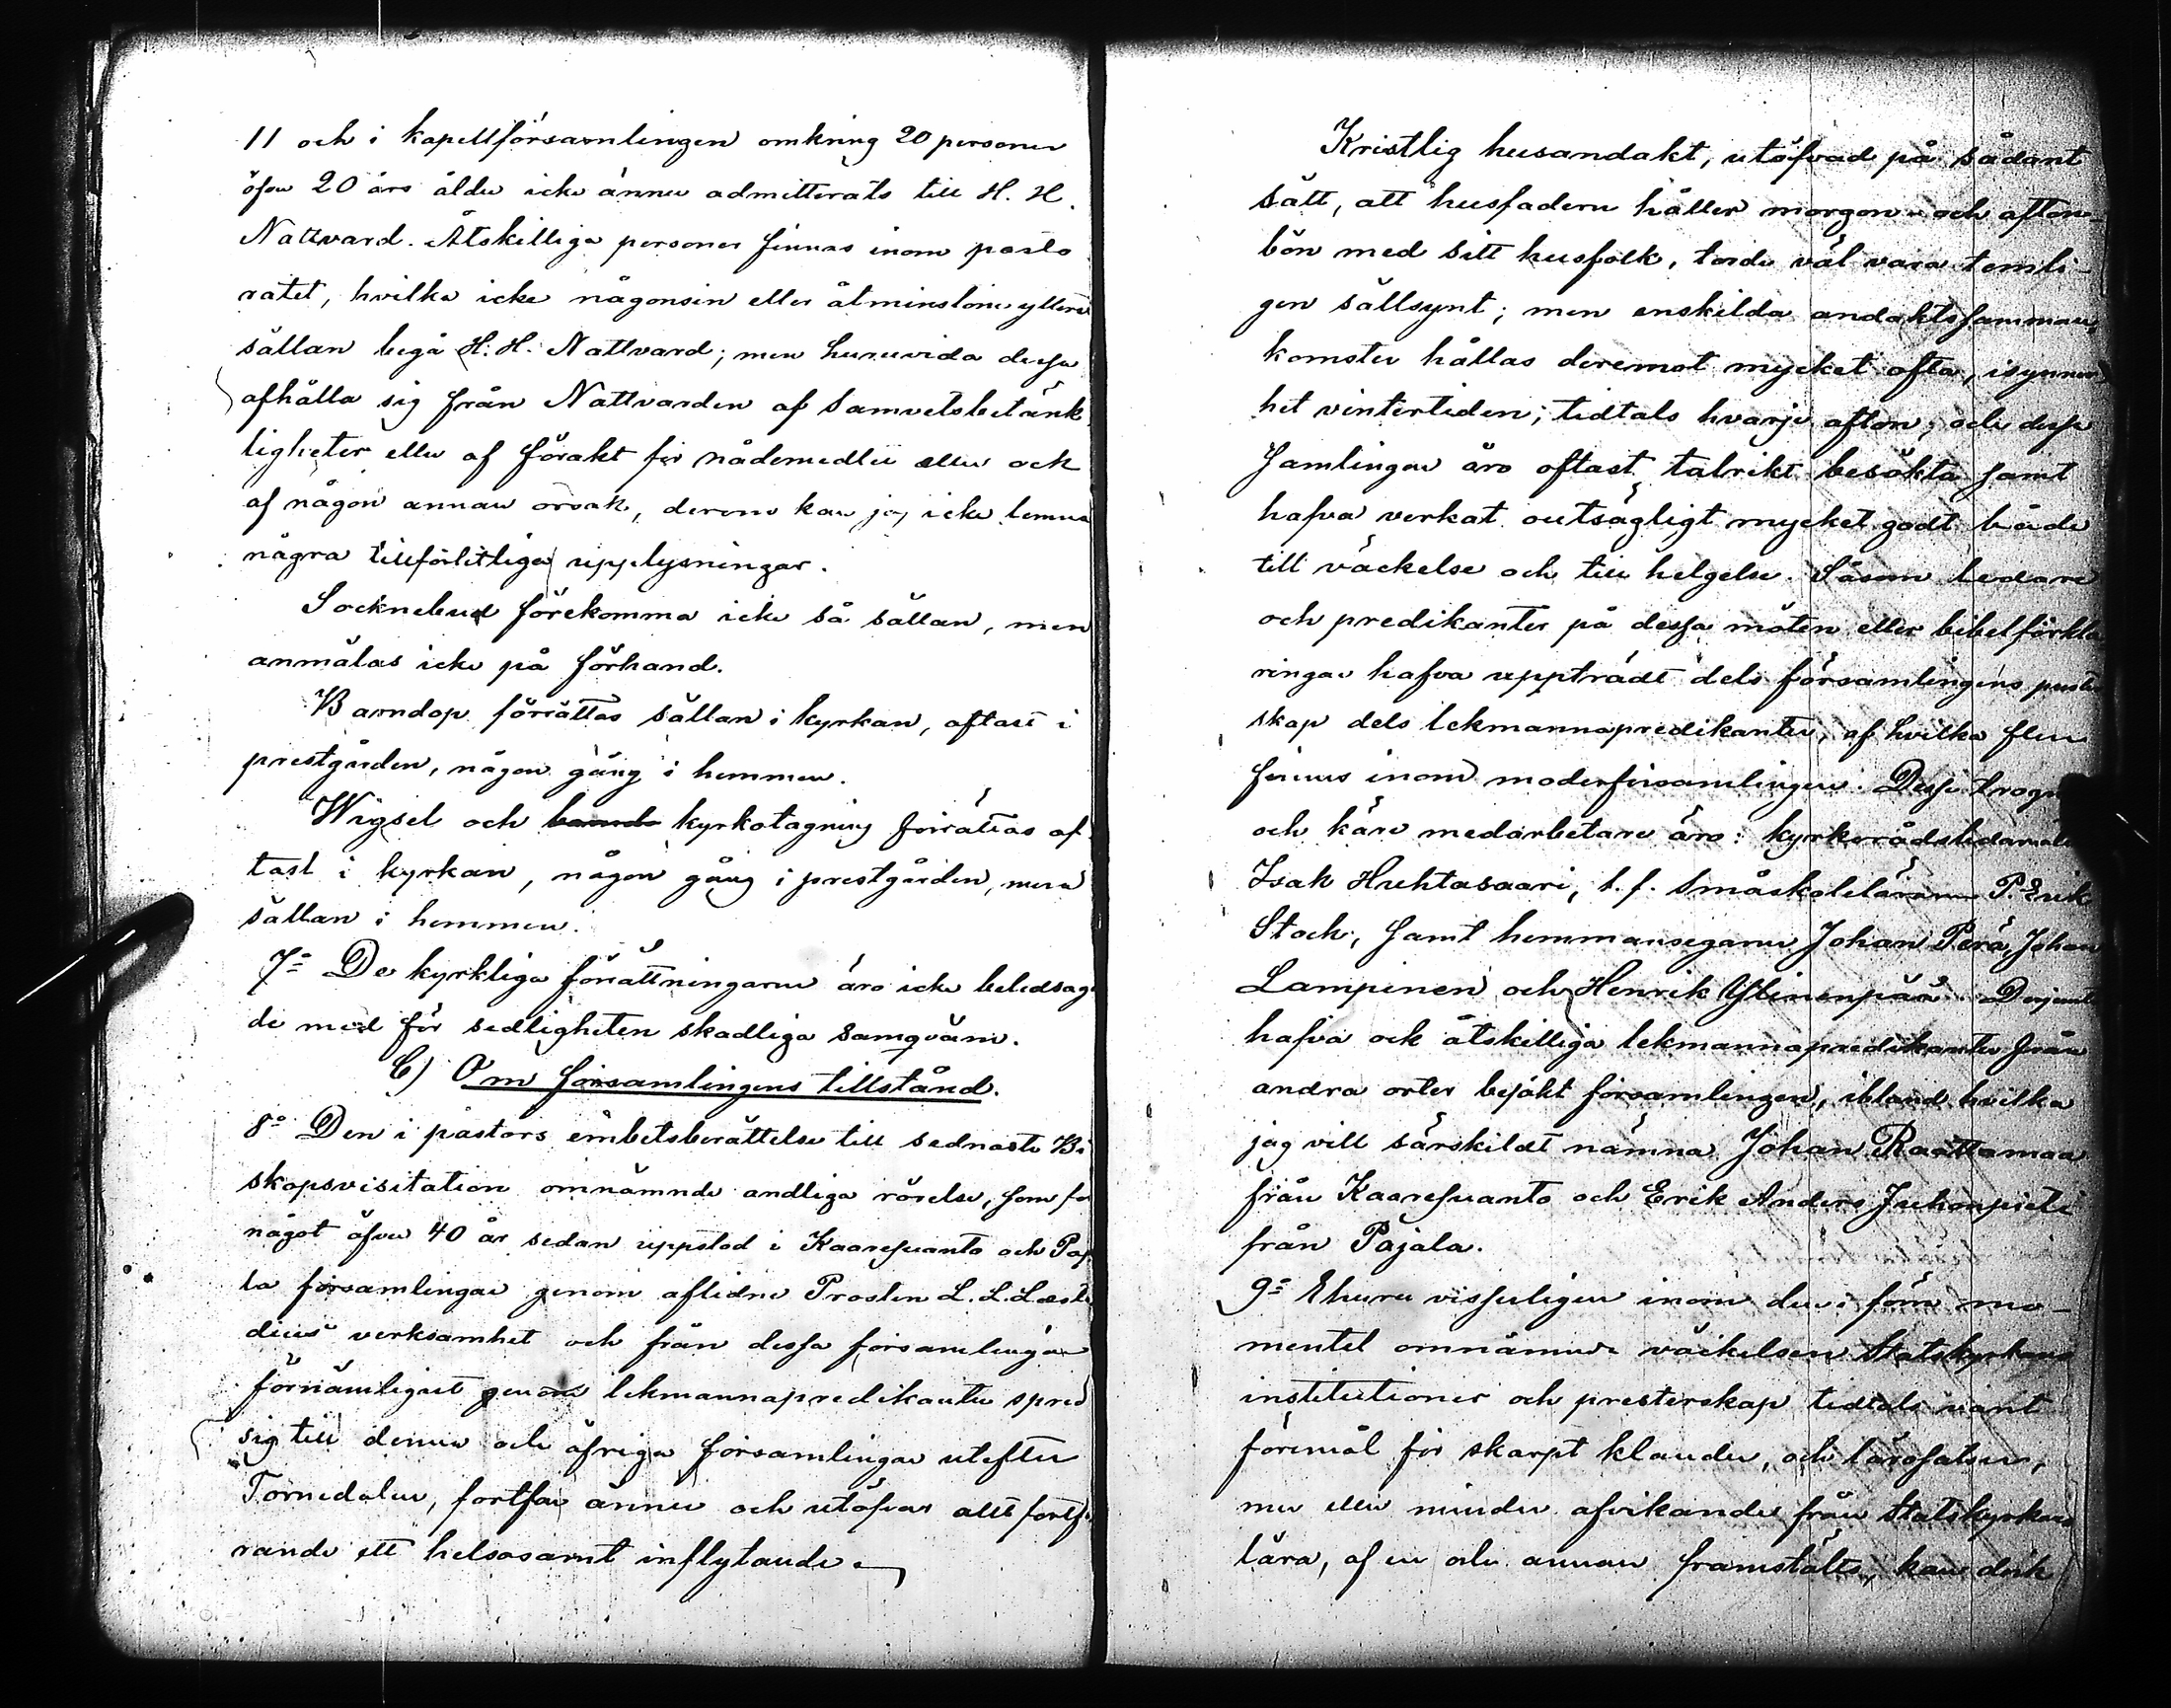 11 och i kapellförsamlingen omkring 20 personer
öfver 20 års ålder icke ännu admitterats till H. H.
Nattvard. Åtskilliga personer finnas inom pasto
ratet, hvilka icke någonsin eller åtminstone ytterst
sällan begå H. H. Nattvard; men huruvida dessa
afhålla sig från Nattvarden af samvetsbetänk
ligheter eller af förakt för nådemedlen eller ock
af någon annan orsak, derom kan jag icke lemna
några tillförlitliga upplysningar.
Socknebud förekomma icke så sällan, men
anmälas icke på förhand.
Barndop förrättas sällan i kyrkan, oftast i
prestgården, någon gång i hemmen.
Wigsel och kyrkotagning förrättas of
tast i kyrkan, någon gång i prestgården, mera
sällan i hemmen.
7o De kyrkliga förrättningarne äro icke beledsaga
de med för sedligheten skadliga samqväm.
C) Om församlingens tillstånd.
8o Den i pastors embetsberättelse till sednaste Bi
skopsvisitation omnämnde andliga rörelse, som för
något öfver 40 år sedan uppstod i Kaaresuanto och Paja
la församlingar genom aflidne Prosten L. L. Læsta
dius' verksamhet och från dessa församlingar
förnämligast genom lekmannapredikanter spred
sig till denna och öfriga församlingar utefter
Tornedalen, fortfar ännu och utöfvar allt fortfa
rande ett helsosamt inflytande.
Kristlig husandakt, utöfvad på sådant
sätt, att husfadern håller morgon- och afton
bön med sitt husfolk, torde väl vara temli-
gen sällsynt; men enskilda andaktssamman
komster hållas deremot mycket ofta, isynner
het vintertiden; tidtals hvarje afton; och dessa
samlingar äro oftast talrikt besökta samt
hafva verkat outsägligt mycket godt både
till väckelse och till helgelse. Såsom ledare
och predikanter på dessa möten eller bibelförkla
ringar hafva uppträdt dels församlingens prester
skap dels lekmannapredikanter, af hvilka flere
finnas inom moderförsamlingen. Desse trogne
och käre medarbetare äro: kyrkorådsledamoten
Isak Huhtasaari, t. f. småskoleläraren P. Erik
Stock, samt hemmansegarne Johan Perä, Johan
Lampinen och Henrik Ylinenpää. Derjemte
hafva ock åtskilliga lekmannapredikanter från
andra orter besökt församlingen, ibland hvilka
jag vill särskildt nämna Johan Raattamaa
från Kaaresuanto och Erik Anders Juhonpieti
från Pajala.
9o Ehuru visserligen inom den i förra mo-
mentet omnämnde väckelsen Statskyrkans
institutioner och presterskap tidtals varit
föremål för skarpt klander, och lärosatser,
mer eller mindre afvikande från Statskyrkans
lära, af en och annan framstälts, kan dock